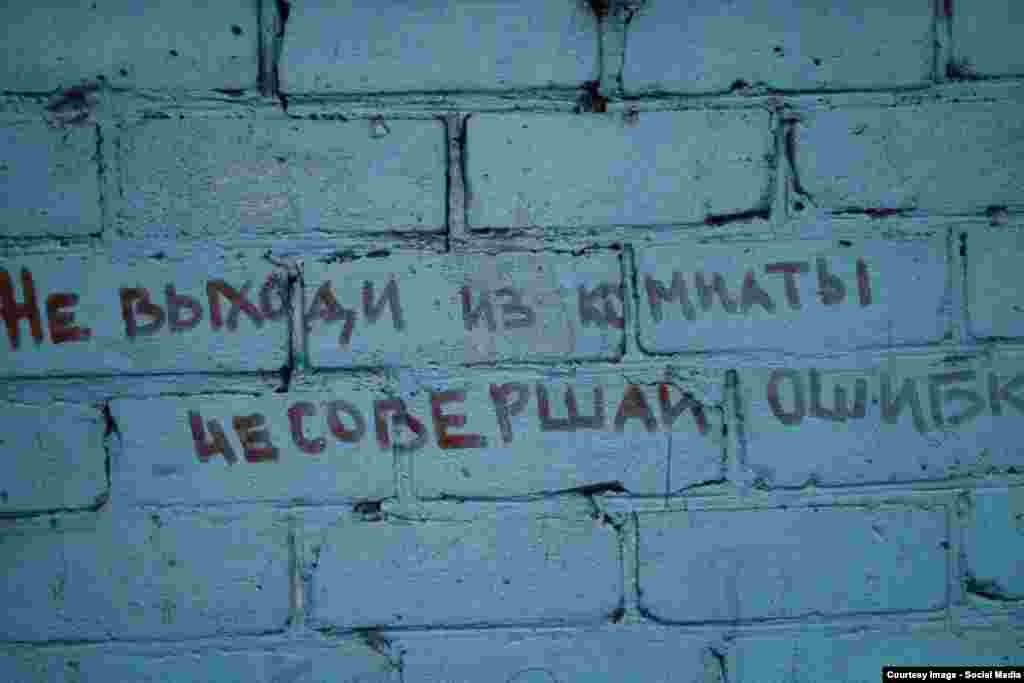 Не выходи из комнаты
не совершай ошибк
Courtesy Image - Social Media